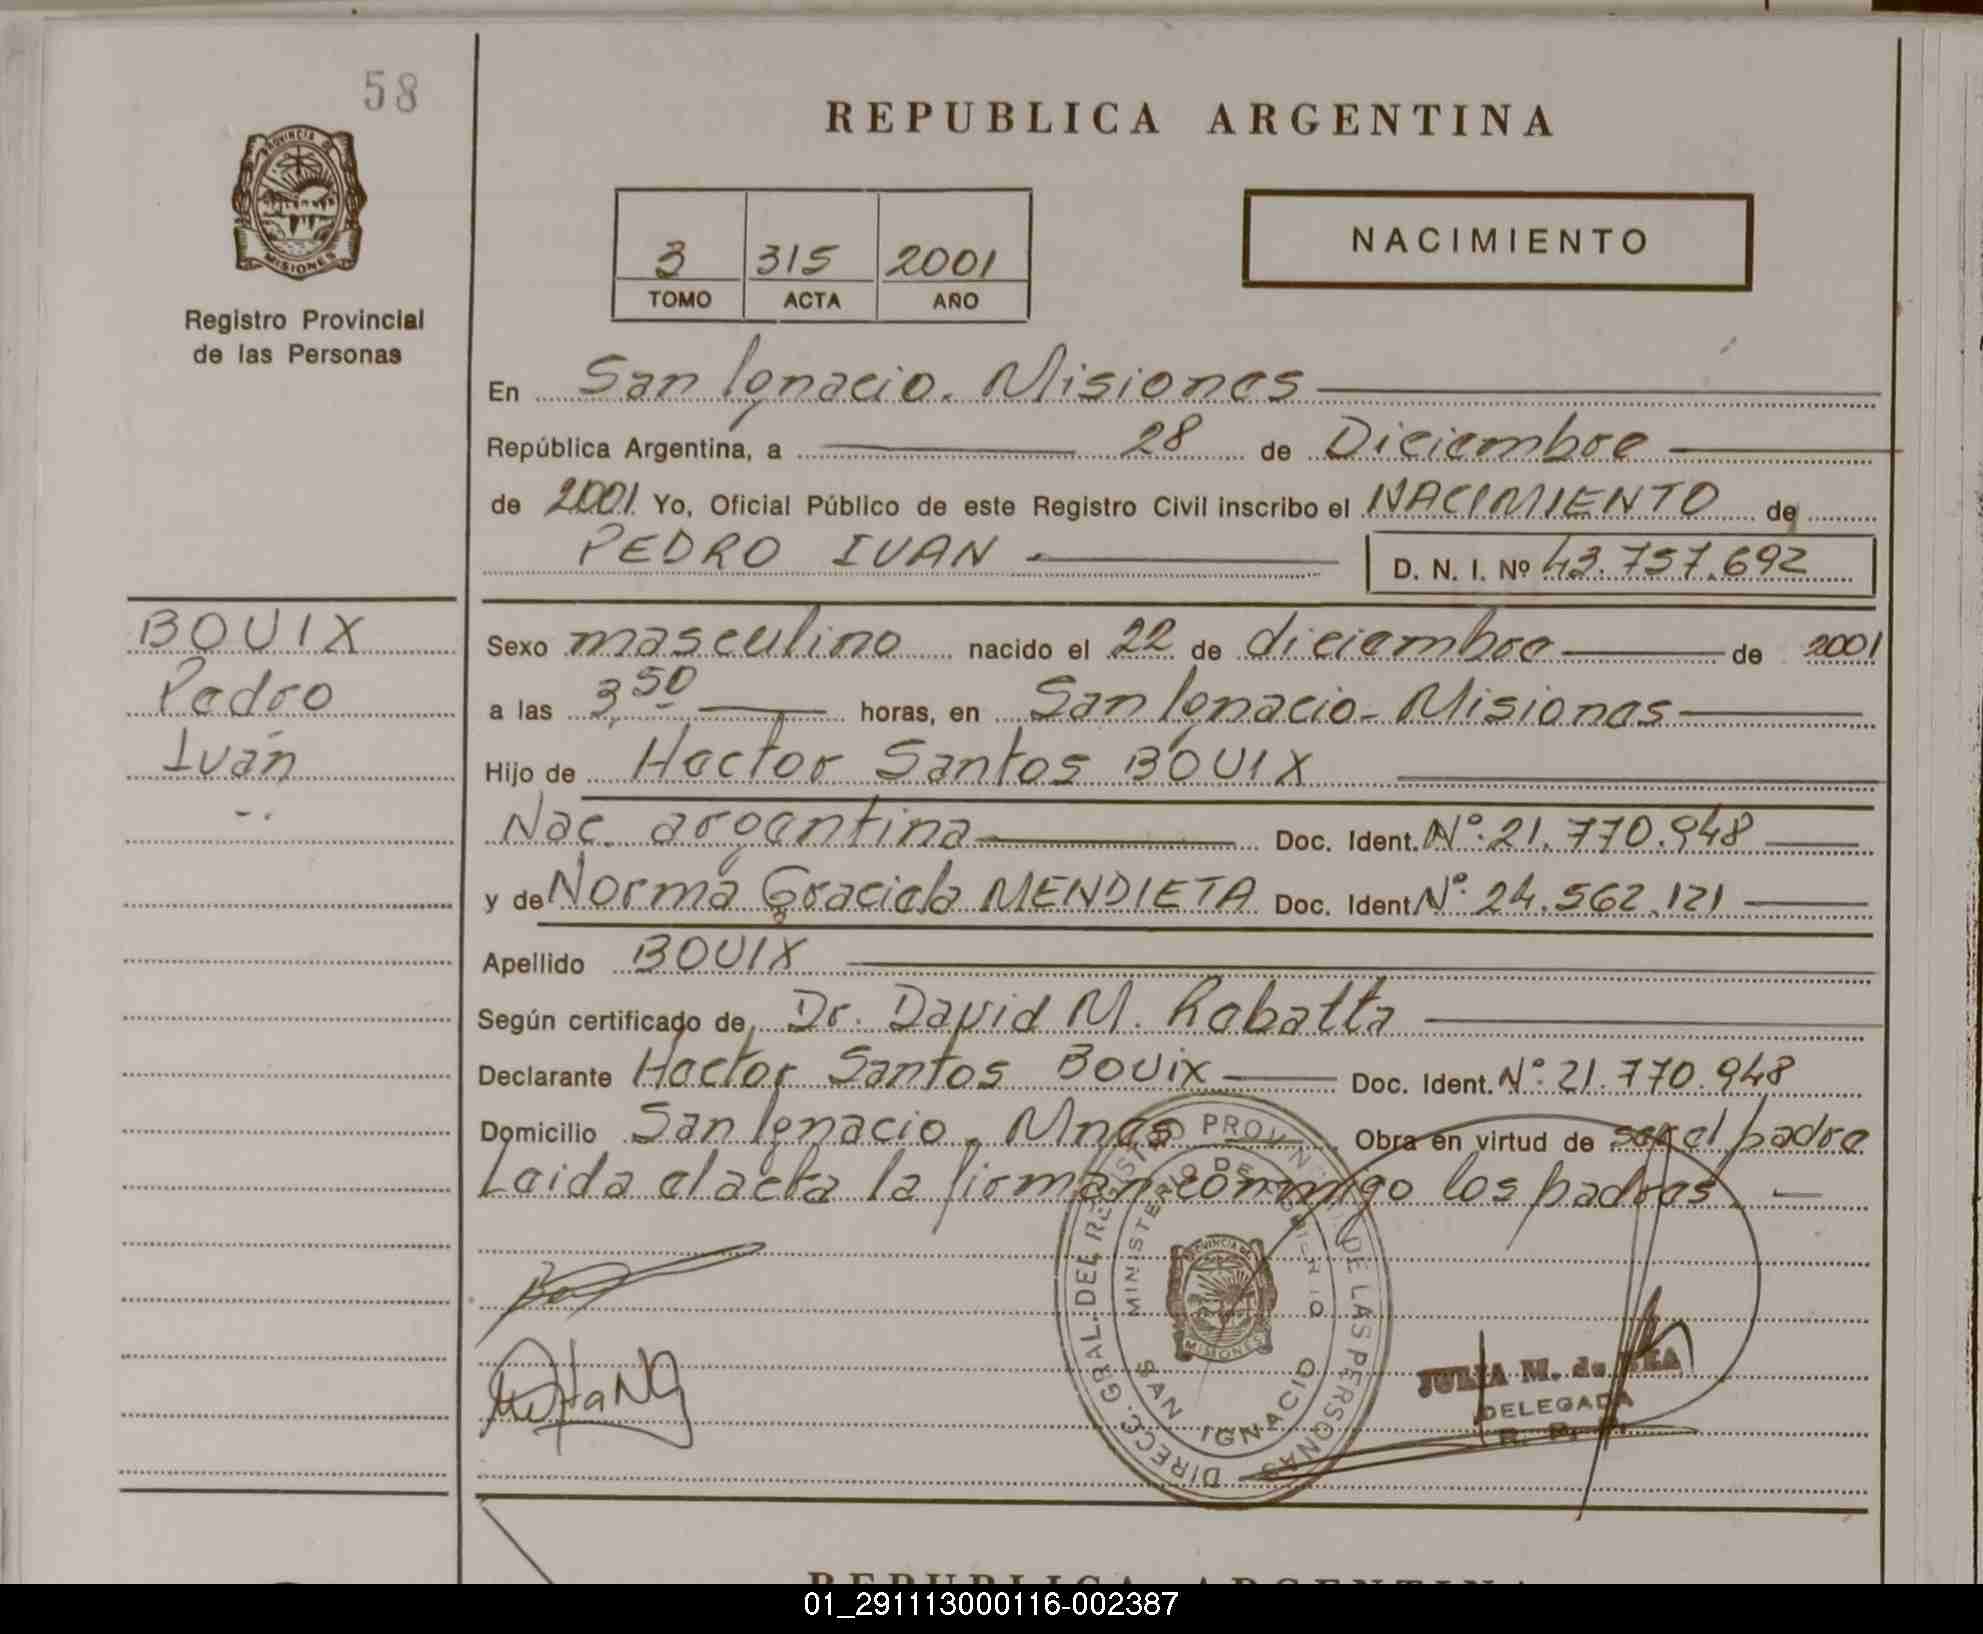 58
REPUBLICA ARGENTINA
PROVINCIA DE
MISIONES
Registro Provincial
de las Personas
3 315 2001
TOMO ACTA AÑO
NACIMIENTO
En San Ignacio. Misiones
República Argentina, a 28 de Diciembre
de 2001 Yo, Oficial Público de este Registro Civil inscribo el NACIMIENTO de
PEDRO IVAN D. N. I. Nº 43.757.692
BOUIX
Pedro
Iván
Sexo masculino nacido el 22 de diciembre de 2001
a las 3,50 horas, en San Ignacio - Misiones
Hijo de Hector Santos BOUIX
Nac. argentina Doc. Ident. Nº 21.770.948
y de Norma Graciela MENDIETA Doc. Ident. Nº 24.562.121
Apellido BOUIX
Según certificado de Dr. David M. Rabatta
Declarante Hector Santos Bouix Doc. Ident. Nº 21.770.948
Domicilio San Ignacio, Mnes Obra en virtud de ser el padre
Leida el acta la firman conmigo los padres.
DIRECC. GRAL. DEL REGISTRO PROVINCIAL DE LAS PERSONAS
MINISTERIO DE GOBIERNO
PROVINCIA DE
MISIONES
SAN IGNACIO
JULIA M. de
DELEGADA
REPUBLICA ARGENTINA
01_291113000116-002387